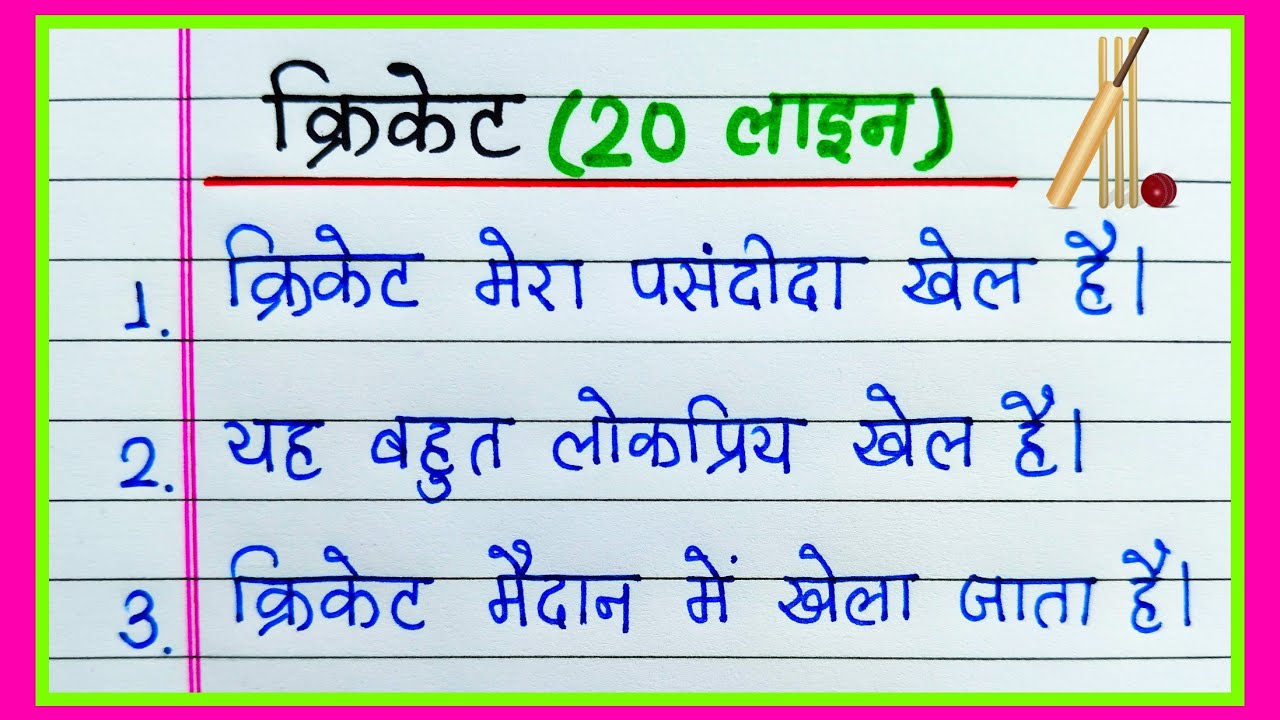 क्रिकेट (20 लाइन)
1. क्रिकेट मेरा पसंदीदा खेल है।
2. यह बहुत लोकप्रिय खेल है।
3. क्रिकेट मैदान में खेला जाता है।